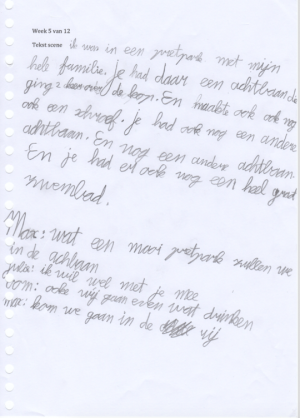 Week 5 van 12
Tekst scene ik was in een pretpark met mijn
hele familie. Je had daar een achtbaan. die
ging 2 keer over de kop. En maakte ook ook nog
ook een schroef. je had ook nog een andere
achtbaan. En nog een andere achtbaan.
En je had er ook nog een heel groot
zwembad.
Max: wat een mooi pretpark zullen we
in de achbaan
julia: ik wil wel met je mee
vom: oke wij gaan even wat drinken
max: kom we gaan in de rij